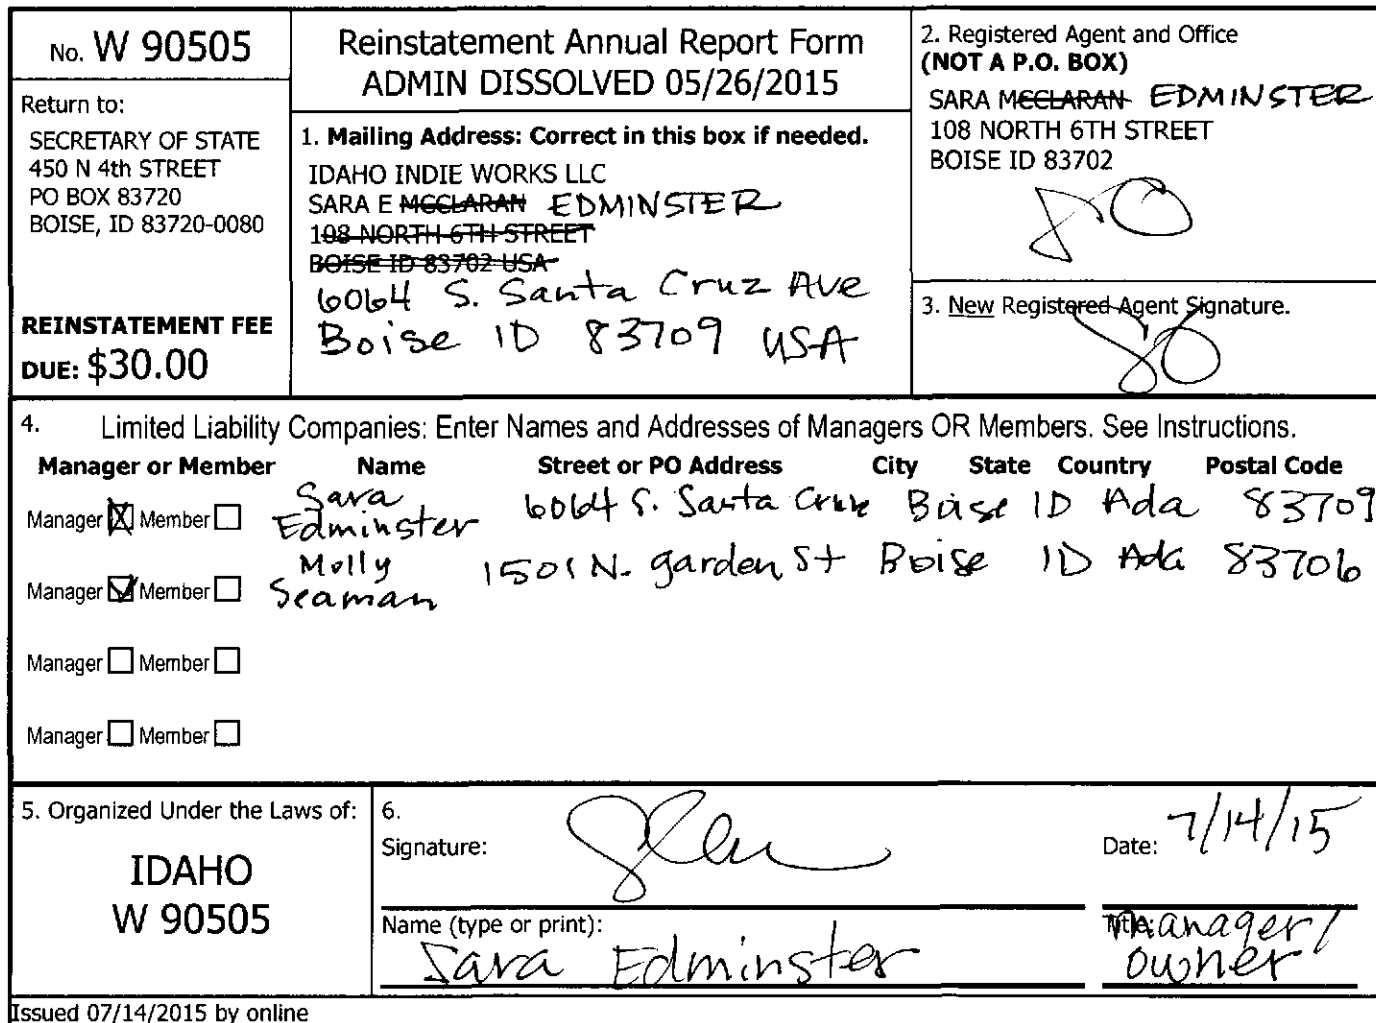 No. W 90505
Return to:
SECRETARY OF STATE
450 N 4th STREET
PO BOX 83720
BOISE, ID 83720-0080
REINSTATEMENT FEE
DUE: $30.00
Reinstatement Annual Report Form
ADMIN DISSOLVED 05/26/2015
1. Mailing Address: Correct in this box if needed.
IDAHO INDIE WORKS LLC
SARA E MCCLARAN EDMINSTER
108 NORTH 6TH STREET
BOISE ID 83702 USA
6064 S. Santa Cruz Ave
Boise ID 83709 USA
2. Registered Agent and Office
(NOT A P.O. BOX)
SARA MCCLARAN EDMINSTER
108 NORTH 6TH STREET
BOISE ID 83702
3. New Registered Agent Signature.
4. Limited Liability Companies: Enter Names and Addresses of Managers OR Members. See Instructions.
Manager or Member Name Street or PO Address City State Country Postal Code
Manager Member Sara Edminster 6064 S. Santa Cruz Boise ID Ada 83709
Manager Member Molly Seaman 1501 N. garden St Boise ID Ada 83706
Manager Member
Manager Member
5. Organized Under the Laws of:
IDAHO
W 90505
6.
Signature:
Date: 7/14/15
Name (type or print):
Sara Edminster
Title: manager/
owner
Issued 07/14/2015 by online